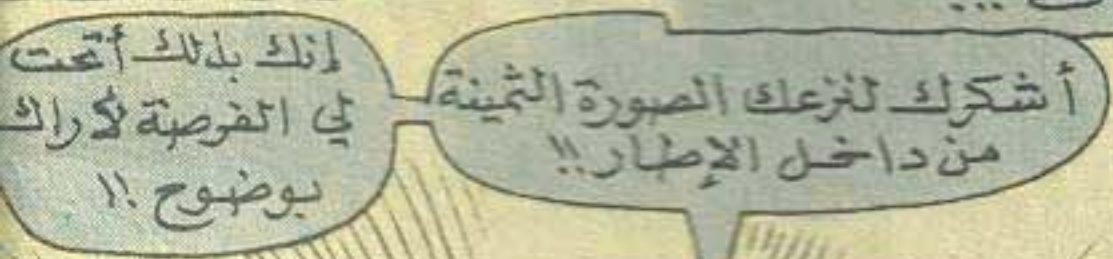 أشكرك لنزعك الصورة الثمينة
من داخل الإطار!!
إنك بذلك أتحت
لي الفرصة لأراك
بوضوح!!